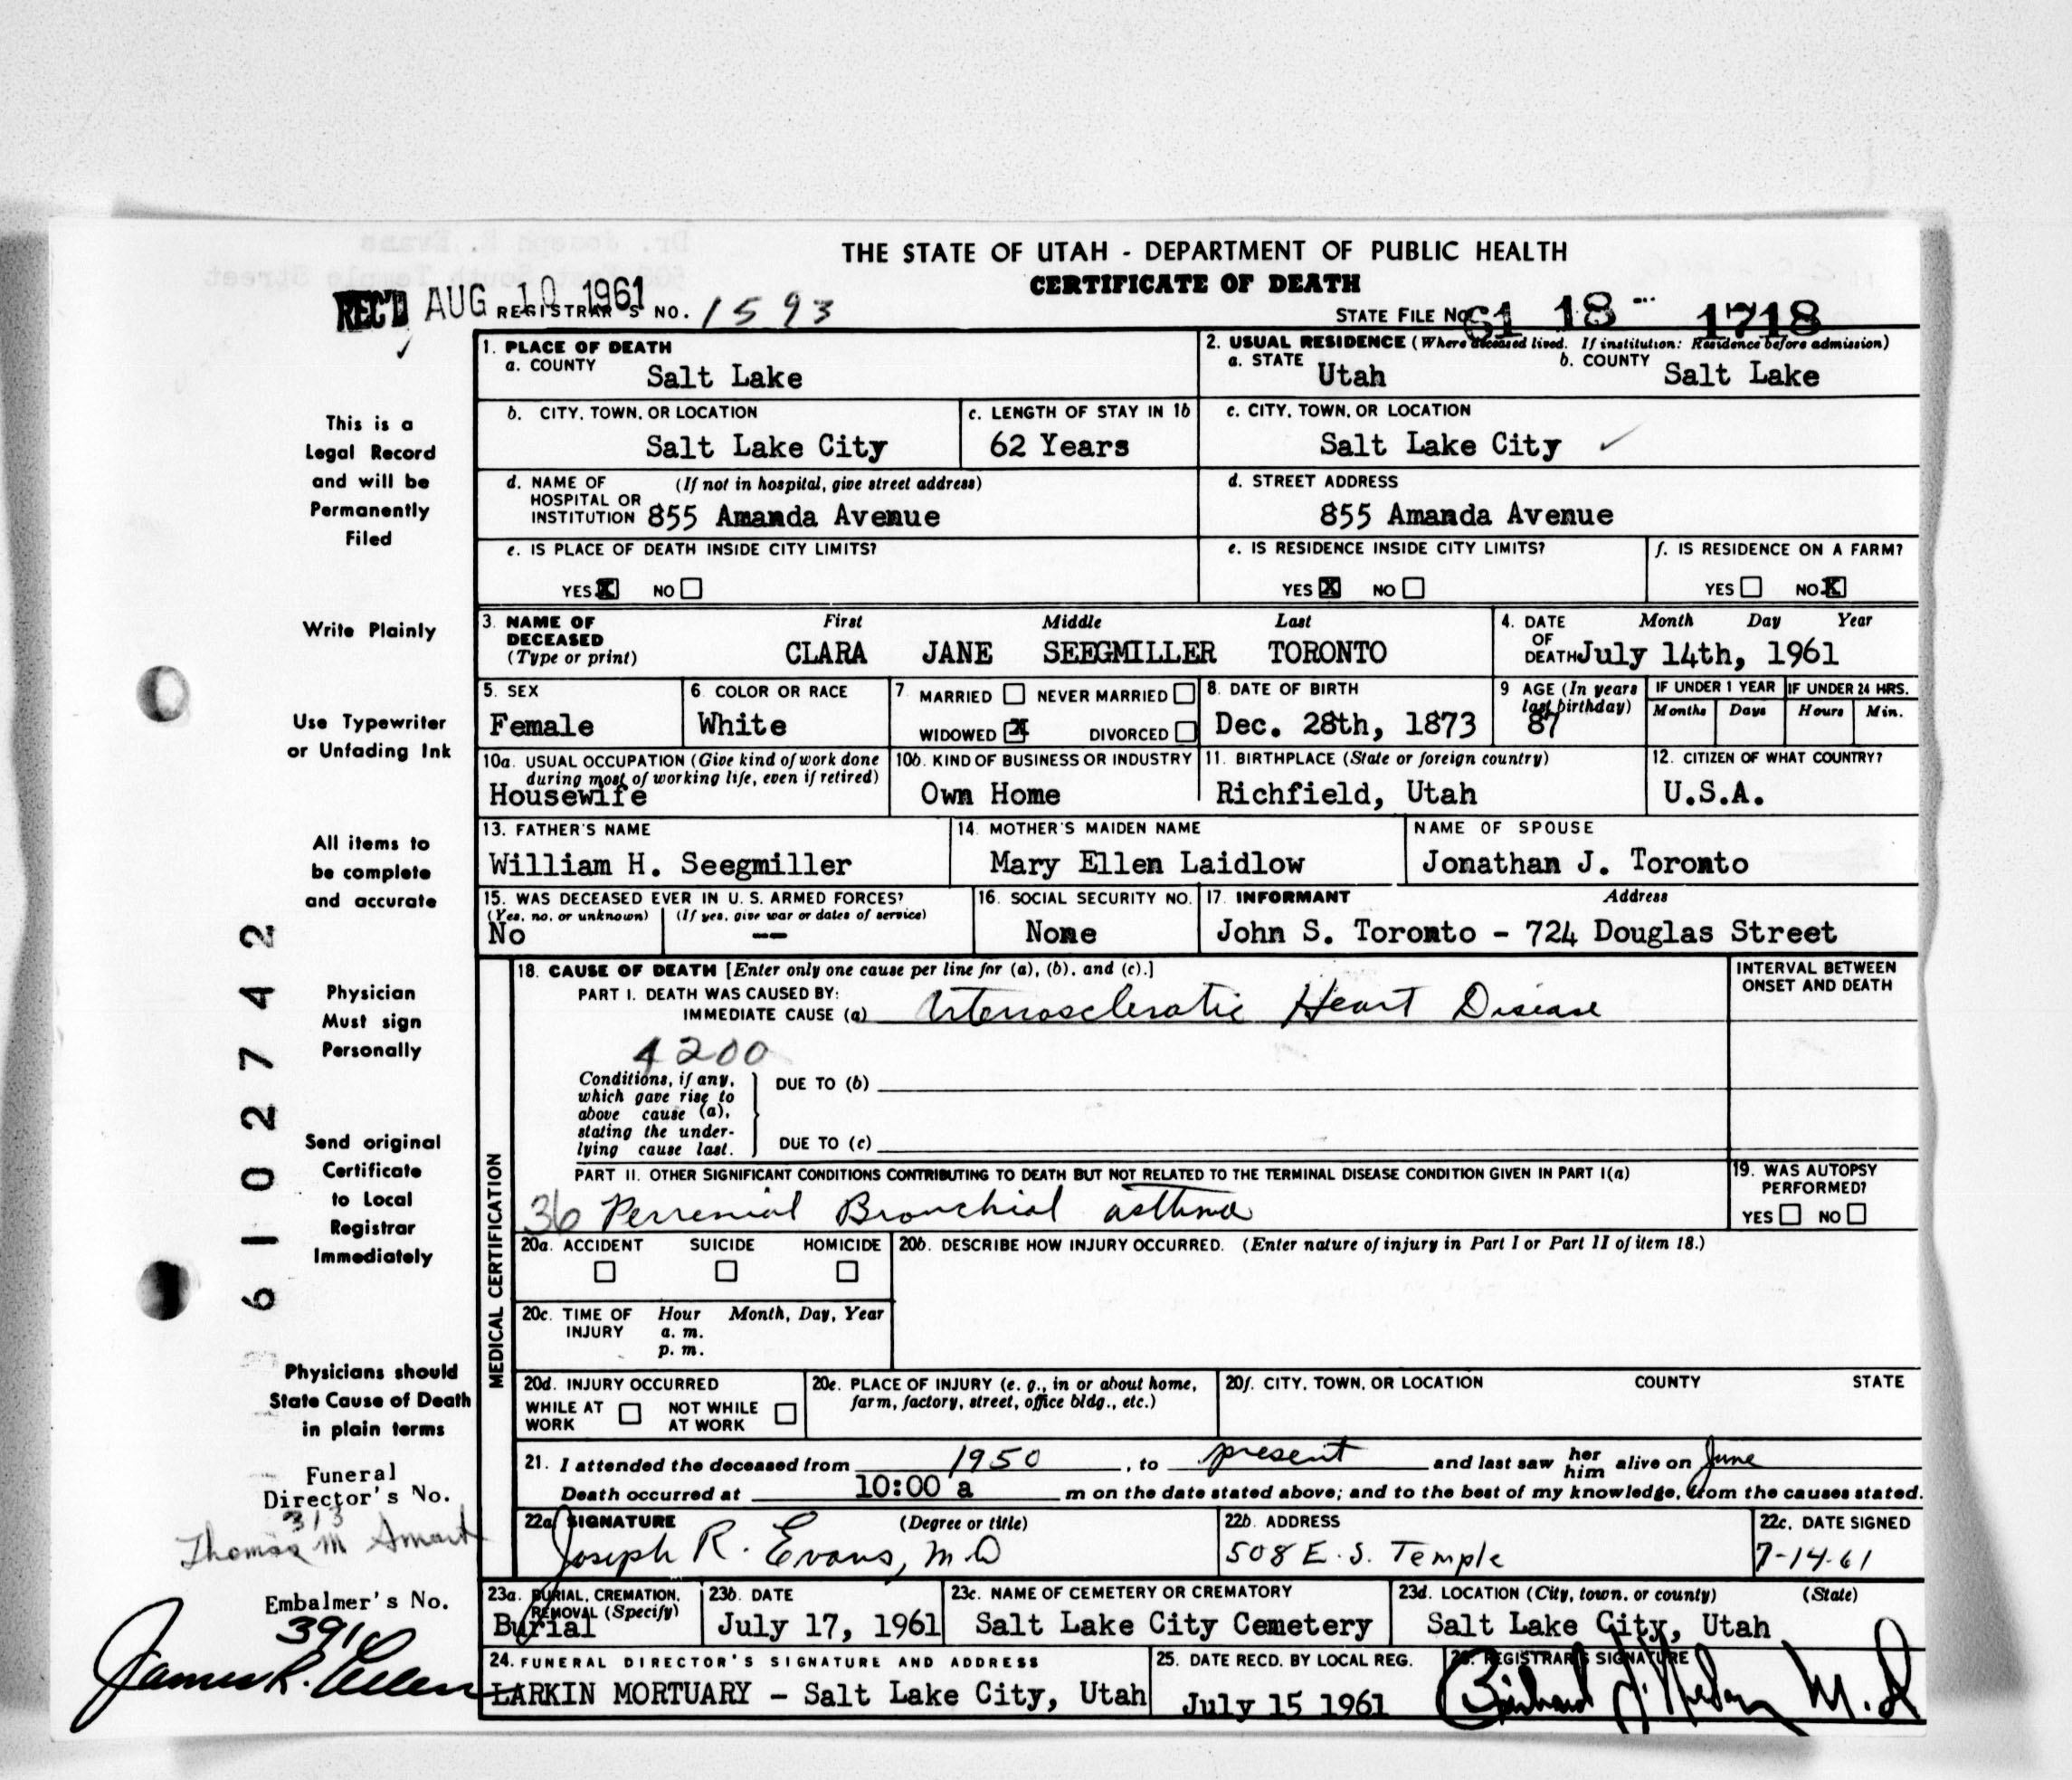 THE STATE OF UTAH - DEPARTMENT OF PUBLIC HEALTH
CERTIFICATE OF DEATH
REC'D AUG 10 1961 REGISTRAR'S NO. 1593
STATE FILE NO. 61 18 1718
1. PLACE OF DEATH
a. COUNTY Salt Lake
2. USUAL RESIDENCE (Where deceased lived. If institution: Residence before admission)
a. STATE Utah b. COUNTY Salt Lake
b. CITY, TOWN, OR LOCATION Salt Lake City
c. LENGTH OF STAY IN 1b 62 Years
c. CITY, TOWN, OR LOCATION Salt Lake City
d. NAME OF HOSPITAL OR INSTITUTION (If not in hospital, give street address) 855 Amanda Avenue
d. STREET ADDRESS 855 Amanda Avenue
e. IS PLACE OF DEATH INSIDE CITY LIMITS? YES X NO
e. IS RESIDENCE INSIDE CITY LIMITS? YES X NO
f. IS RESIDENCE ON A FARM? YES NO X
3. NAME OF DECEASED (Type or print) First Middle Last
CLARA JANE SEEGMILLER TORONTO
4. DATE OF DEATH Month Day Year July 14th, 1961
5. SEX Female
6. COLOR OR RACE White
7. MARRIED NEVER MARRIED WIDOWED X DIVORCED
8. DATE OF BIRTH Dec. 28th, 1873
9 AGE (In years last birthday) 87
IF UNDER 1 YEAR Months Days
IF UNDER 24 HRS. Hours Min.
10a. USUAL OCCUPATION (Give kind of work done during most of working life, even if retired) Housewife
10b. KIND OF BUSINESS OR INDUSTRY Own Home
11. BIRTHPLACE (State or foreign country) Richfield, Utah
12. CITIZEN OF WHAT COUNTRY? U.S.A.
13. FATHER'S NAME William H. Seegmiller
14. MOTHER'S MAIDEN NAME Mary Ellen Laidlow
NAME OF SPOUSE Jonathan J. Toronto
15. WAS DECEASED EVER IN U. S. ARMED FORCES?
(Yes, no, or unknown) No (If yes, give war or dates of service) --
16. SOCIAL SECURITY NO. None
17. INFORMANT Address
John S. Toronto - 724 Douglas Street
MEDICAL CERTIFICATION
18. CAUSE OF DEATH [Enter only one cause per line for (a), (b), and (c).]
INTERVAL BETWEEN ONSET AND DEATH
PART I. DEATH WAS CAUSED BY:
IMMEDIATE CAUSE (a) Arteriosclerotic Heart Disease
4200
Conditions, if any, which gave rise to above cause (a), stating the underlying cause last.
DUE TO (b)
DUE TO (c)
PART II. OTHER SIGNIFICANT CONDITIONS CONTRIBUTING TO DEATH BUT NOT RELATED TO THE TERMINAL DISEASE CONDITION GIVEN IN PART I(a)
36 Perrenial Bronchial asthma
19. WAS AUTOPSY PERFORMED? YES NO
20a. ACCIDENT SUICIDE HOMICIDE
20b. DESCRIBE HOW INJURY OCCURRED. (Enter nature of injury in Part I or Part II of item 18.)
20c. TIME OF INJURY Hour a. m. p. m. Month, Day, Year
20d. INJURY OCCURRED WHILE AT WORK NOT WHILE AT WORK
20e. PLACE OF INJURY (e. g., in or about home, farm, factory, street, office bldg., etc.)
20f. CITY, TOWN, OR LOCATION COUNTY STATE
21. I attended the deceased from 1950, to present and last saw her him alive on June
Death occurred at 10:00 a m on the date stated above; and to the best of my knowledge, from the causes stated.
22a SIGNATURE (Degree or title) Joseph R. Evans, M.D
22b. ADDRESS 508 E. S. Temple
22c. DATE SIGNED 7-14-61
23a. BURIAL, CREMATION, REMOVAL (Specify) Burial
23b. DATE July 17, 1961
23c. NAME OF CEMETERY OR CREMATORY Salt Lake City Cemetery
23d. LOCATION (City, town, or county) (State) Salt Lake City, Utah
24. FUNERAL DIRECTOR'S SIGNATURE AND ADDRESS
LARKIN MORTUARY - Salt Lake City, Utah
25. DATE RECD. BY LOCAL REG. July 15 1961
26. REGISTRAR'S SIGNATURE M.D
This is a
Legal Record
and will be
Permanently
Filed
Write Plainly
Use Typewriter
or Unfading Ink
All items to
be complete
and accurate
Physician
Must sign
Personally
Send original
Certificate
to Local
Registrar
Immediately
Physicians should
State Cause of Death
in plain terms
Funeral
Director's No.
313
Thomas M Smart
Embalmer's No.
391
James R.
61 02742